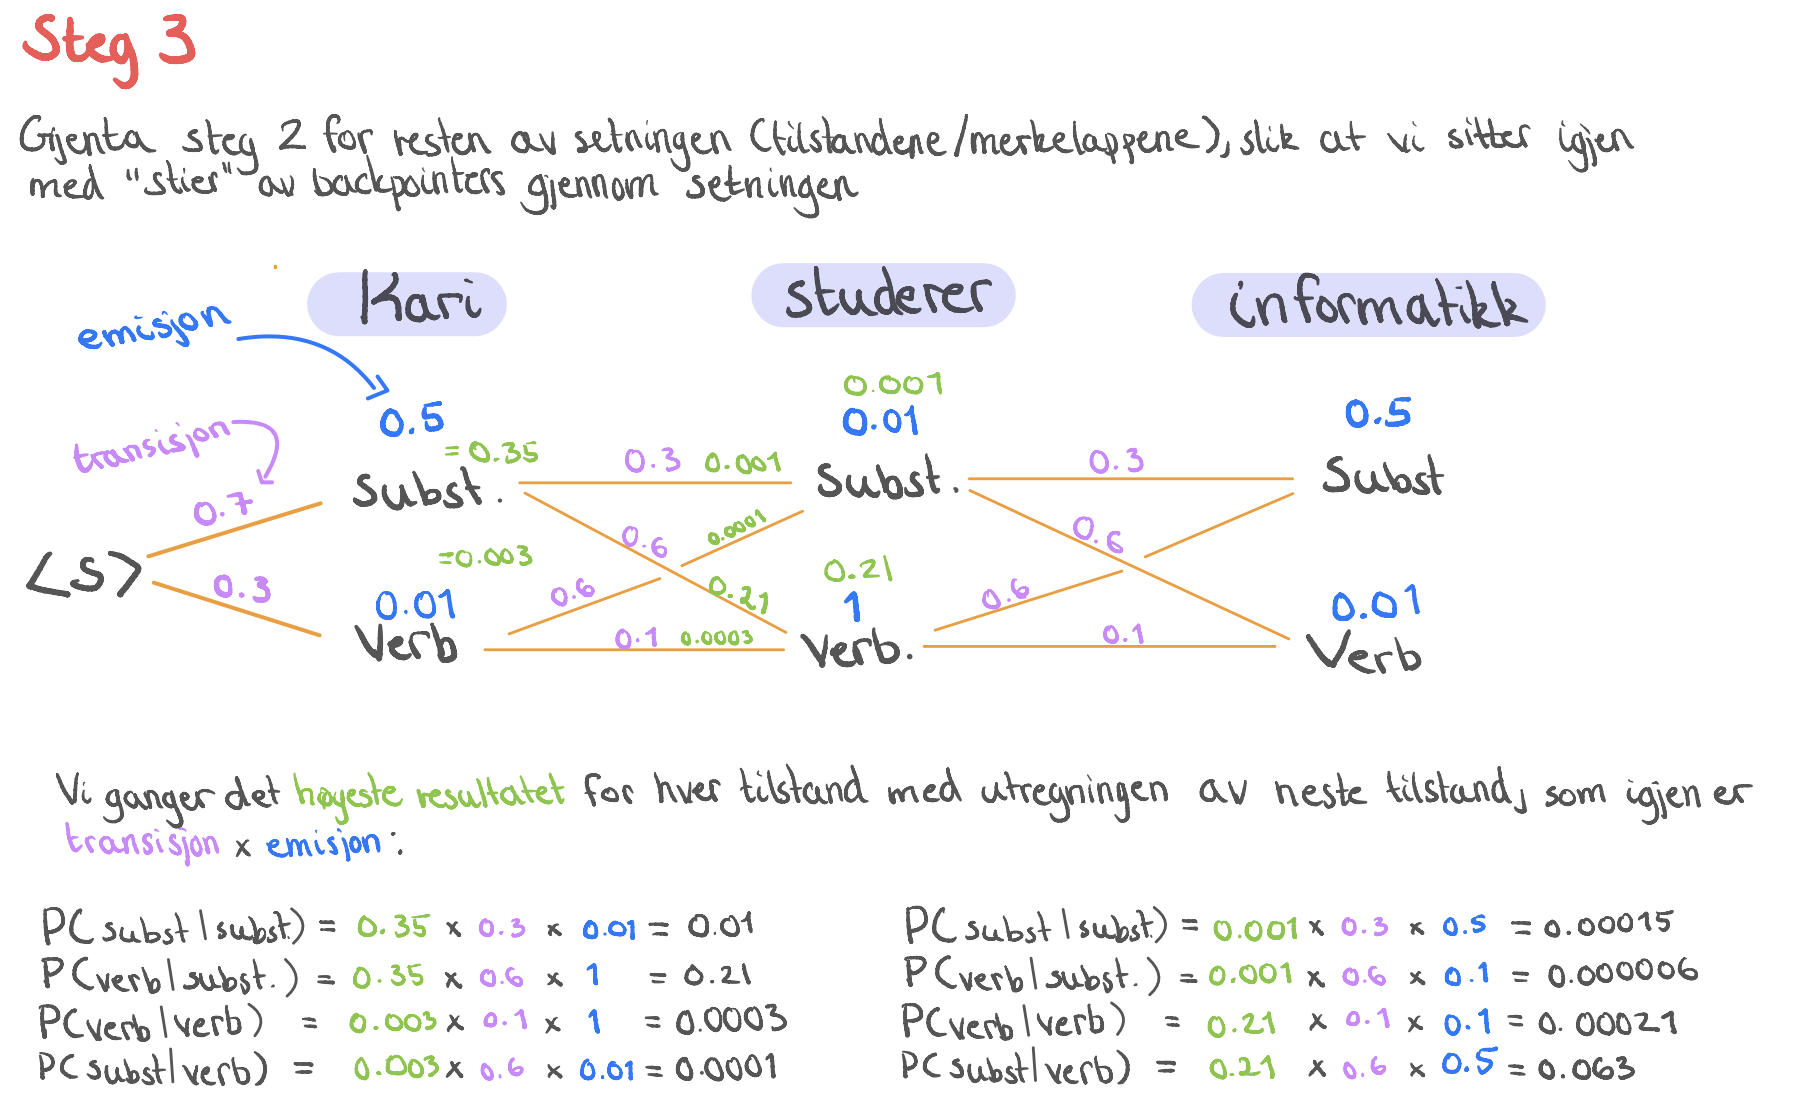 Steg 3
Gjenta steg 2 for resten av setningen (tilstandene/merkelappene), slik at vi sitter igjen
med "stier" av backpointers gjennom setningen
Kari studerer informatikk
emisjon
0.001
0.5 0.01 0.5
transisjon
= 0.35 0.3 0.001 0.3
Subst. Subst. Subst
0.7
0.6 0.0001 0.6
<S> =0.003 0.21
0.3 0.6 0.21 0.6
0.01 1 0.01
Verb 0.1 0.0003 Verb. 0.1 Verb
Vi ganger det høyeste resultatet for hver tilstand med utregningen av neste tilstand, som igjen er
transisjon x emisjon:
P(subst|subst.) = 0.35 x 0.3 x 0.01 = 0.01
P(verb|subst.) = 0.35 x 0.6 x 1 = 0.21
P(verb|verb) = 0.003 x 0.1 x 1 = 0.0003
P(subst|verb) = 0.003 x 0.6 x 0.01 = 0.0001
P(subst|subst.) = 0.001 x 0.3 x 0.5 = 0.00015
P(verb|subst.) = 0.001 x 0.6 x 0.1 = 0.000006
P(verb|verb) = 0.21 x 0.1 x 0.1 = 0.00021
P(subst|verb) = 0.21 x 0.6 x 0.5 = 0.063